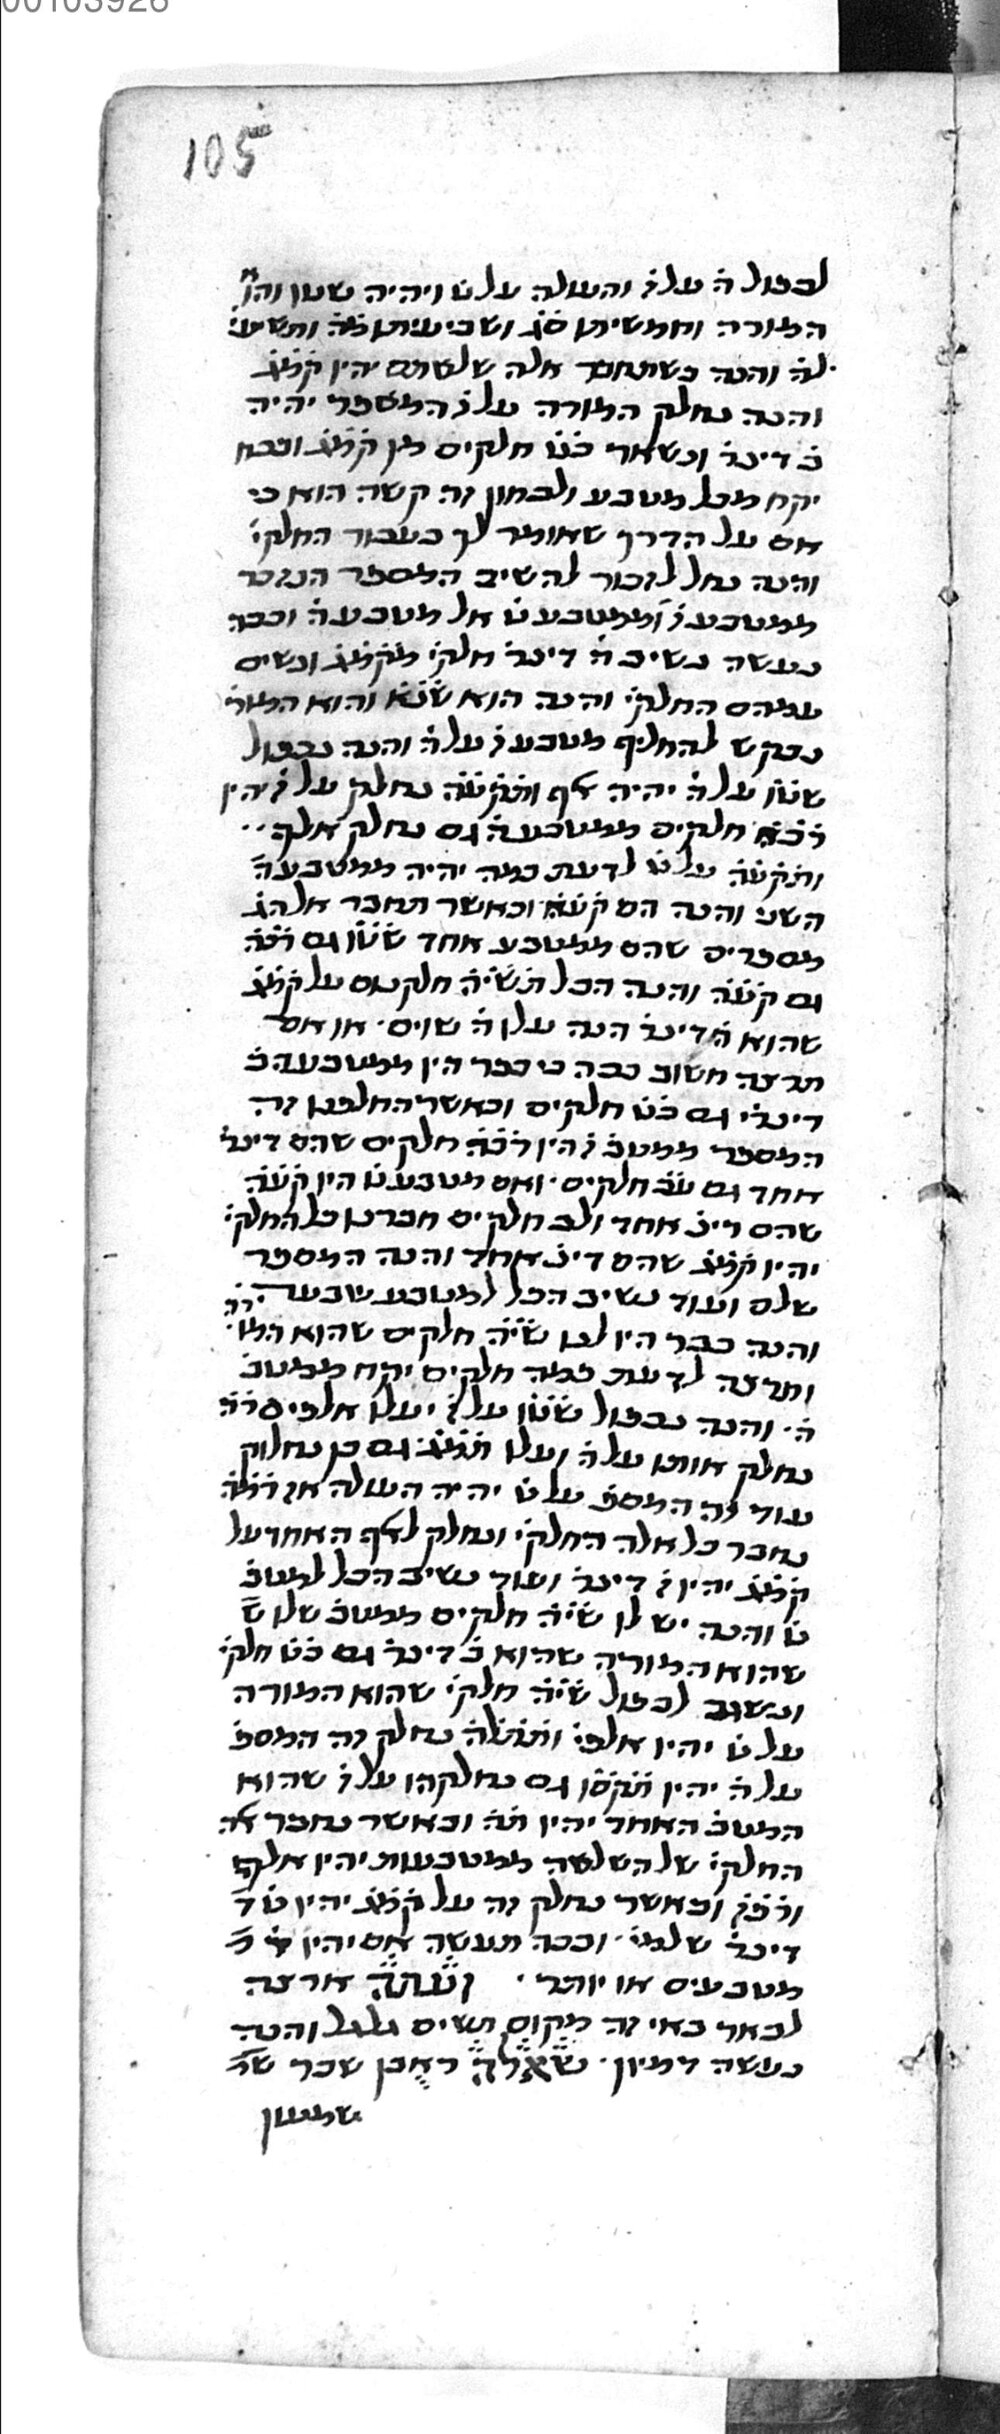 105
לכפול ה על ז והעולה על ט ויהיה שטו והו'
המורה וחמשיתו סג ושביעיתו מה ותשיעי'
לה והנה כשתחבר אלה שלשתם יהיו קמג
והנה נחלק המורה על ז המספר יהיה
ב דינר ונשאר כט חלקים מן קמג וככה
יקח מכל מטבע ולבחון זה קשה הוא כי
אם על הדרך שאומר לך בעבור החלקי'
והנה נחל לזכור להשיב המספר הנזכר
ממטבע ז וממטבע ט אל מטבע ה וככה
נעשה נשיב ה דינר חלקי' מקמג ונשים
עמהם החלקי' והנה הוא שטו והוא המור'
נבקש להחליף מטבע ז על ה והנה נכפול
שטו על ה יהיה אלף ותקעה נחלק על ז יהיו
רכה חלקים ממטבע ה גם נחלק אלף
ותקעה על ט לדעת כמה יהיה ממטבע ה
השני והנה הם קעה וכאשר תחבר אלה ג
מספרים שהם ממטבע אחד שטו גם רכה
גם קעה והנה הכל תשיה חלקנום על קמג
שהוא הדינר הנה עלו ה שוים או אם
תרצה חשוב ככה כי כבר היו ממטבע ה ב
דינרי' גם כט חלקים וכאשר החלפנו זה
המספר ממטב' ז היו רכה חלקים שהם דינר
אחד גם עב חלקים ואם מטבע ט היו קעה
שהם דינ' אחד ולב חלקים חברנו כל החלקי'
יהיו קמג שהם דינ' אחד והנה המספר
שלם ועוד נשיב הכל למטבע שבעה
והנה כבר היו לנו שיה חלקים שהוא המו'רה
ותרצה לדעת כמה חלקים יקח ממטב'
ה והנה נכפול שטו על ז יעלו אלפים רה
נחלק אותו על ה ועלו תמא גם כן נחלוק
עוד זה המספ' על ט יהיה העולה אז רמה
נחבר כל אלה החלקי' ונחלק לאלף האחד על
קמג יהיו ז דינר ועוד נשיב הכל למטב'
ט והנה יש לו שיה חלקים ממטב' שלו
שהוא המורה שהוא ב דינר גם כט חלקי'
ונשוב לכפול שיה חלקי' שהוא המורה
על ט יהיו אלפי' ותתלה נחלק זה המספ'
על ה יהיו תקסז גם נחלקהו על ז שהוא
המטב' האחד יהיו תה וכאשר נחבר אל'
החלקי' של השלשה ממטבעות יהיו אלף
ורפז וכאשר נחלק זה על קמג יהיו ט
דינר שלמי' וככה תעשה אם יהיו
מטבעים או יותר ועתה ארצה
לבאר באי זה מקום תשים גלגל והנה
נעשה דמיון שאלה ראובן שכר
שמעון